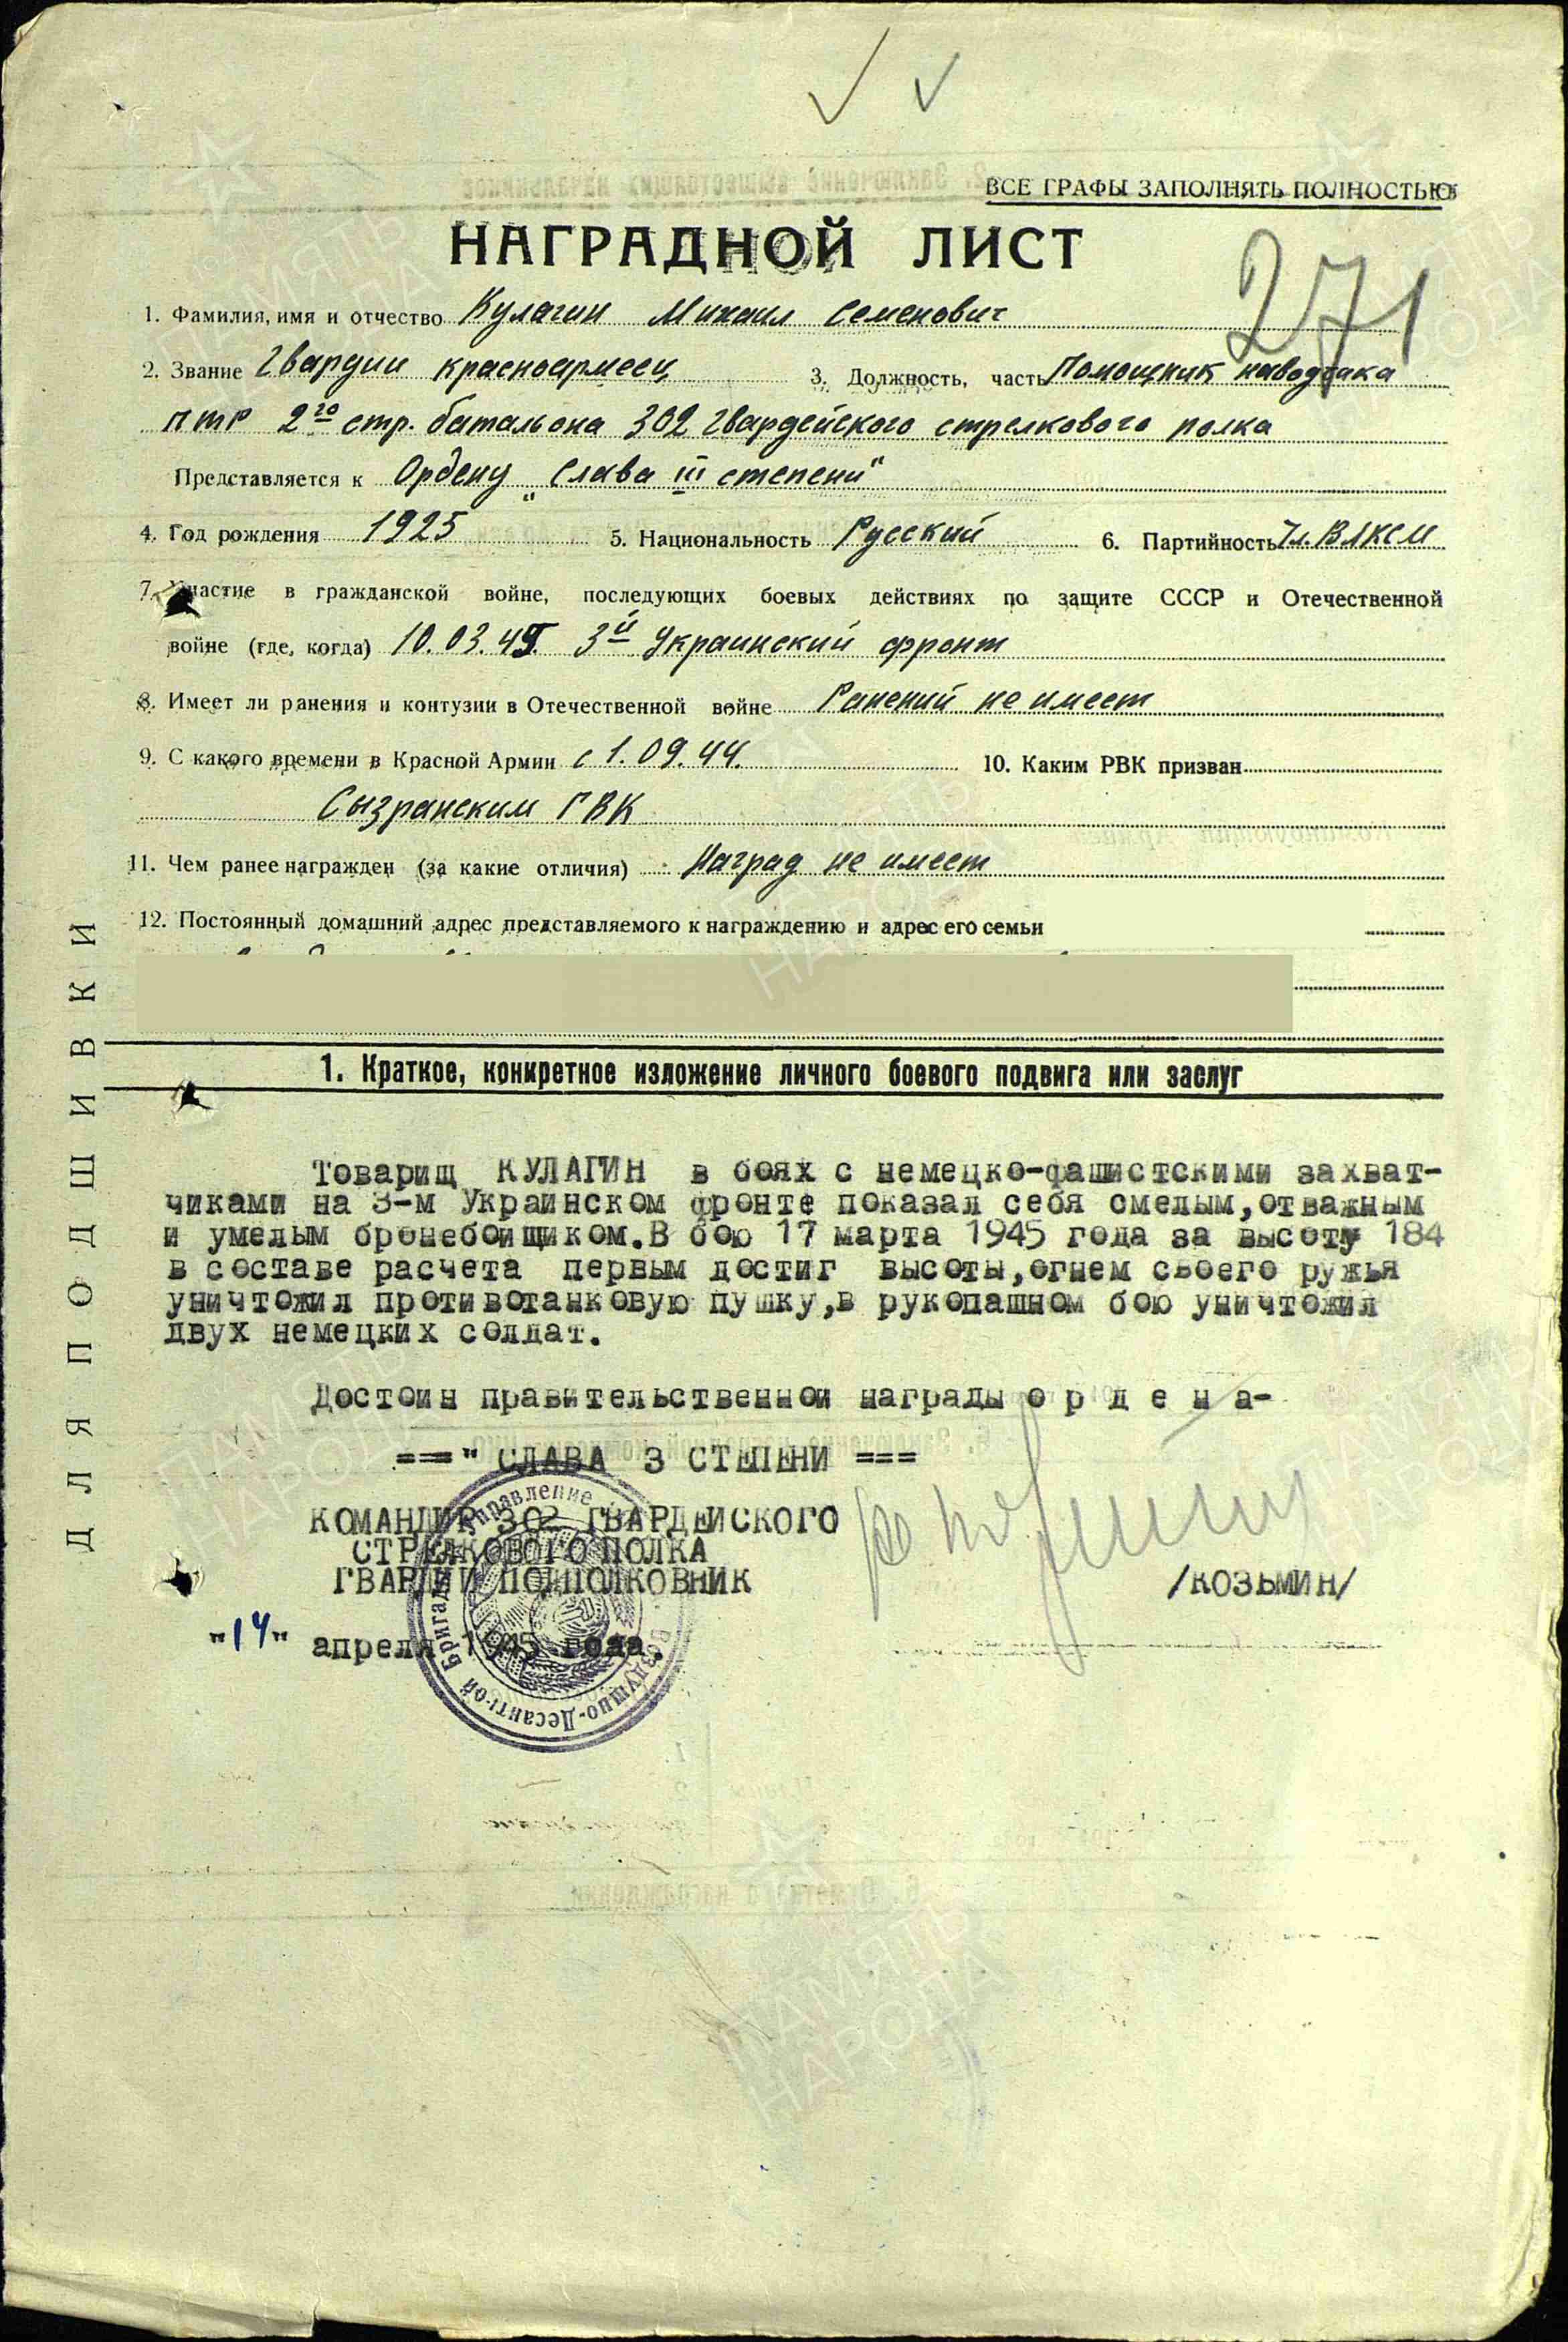 ВСЕ ГРАФЫ ЗАПОЛНЯТЬ ПОЛНОСТЬЮ
НАГРАДНОЙ ЛИСТ
271
1. Фамилия, имя и отчество Кулагин Михаил Семенович
2. Звание Гвардии красноармеец 3. Должность, часть Помощник наводчика
ПТР 2го стр. батальона 302 гвардейского стрелкового полка
Представляется к Ордену „Слава III степени"
4. Год рождения 1925 5. Национальность Русский 6. Партийность Чл. ВЛКСМ
7. Участие в гражданской войне, последующих боевых действиях по защите СССР и Отечественной
войне (где, когда) 10.03.45. 3й Украинский фронт
8. Имеет ли ранения и контузии в Отечественной войне Ранений не имеет
9. С какого времени в Красной Армии с 1.09.44. 10. Каким РВК призван
Сызранским ГВК
11. Чем ранее награжден (за какие отличия) Наград не имеет
12. Постоянный домашний адрес представляемого к награждению и адрес его семьи
1. Краткое, конкретное изложение личного боевого подвига или заслуг
Товарищ КУЛАГИН в боях с немецко-фашистскими захват-
чиками на 3-м Украинском фронте показал себя смелым,отважным
и умелым бронебойщиком.В бою 17 марта 1945 года за высоту 184
в составе расчета первым достиг высоты,огнем своего ружья
уничтожил противотанковую пушку,в рукопашном бою уничтожил
двух немецких солдат.
Достоин правительственной награды о р д е н а-
===" СЛАВА 3 СТЕПЕНИ ===
КОМАНДИР 302 ГВАРДЕЙСКОГО
СТРЕЛКОВОГО ПОЛКА
ГВАРДИИ ПОДПОЛКОВНИК
/КОЗЬМИН/
"14" апреля 1945 года.
Управление
Воздушно-Десантной Бригады
ДЛЯ ПОДШИВКИ
ПАМЯТЬ НАРОДА